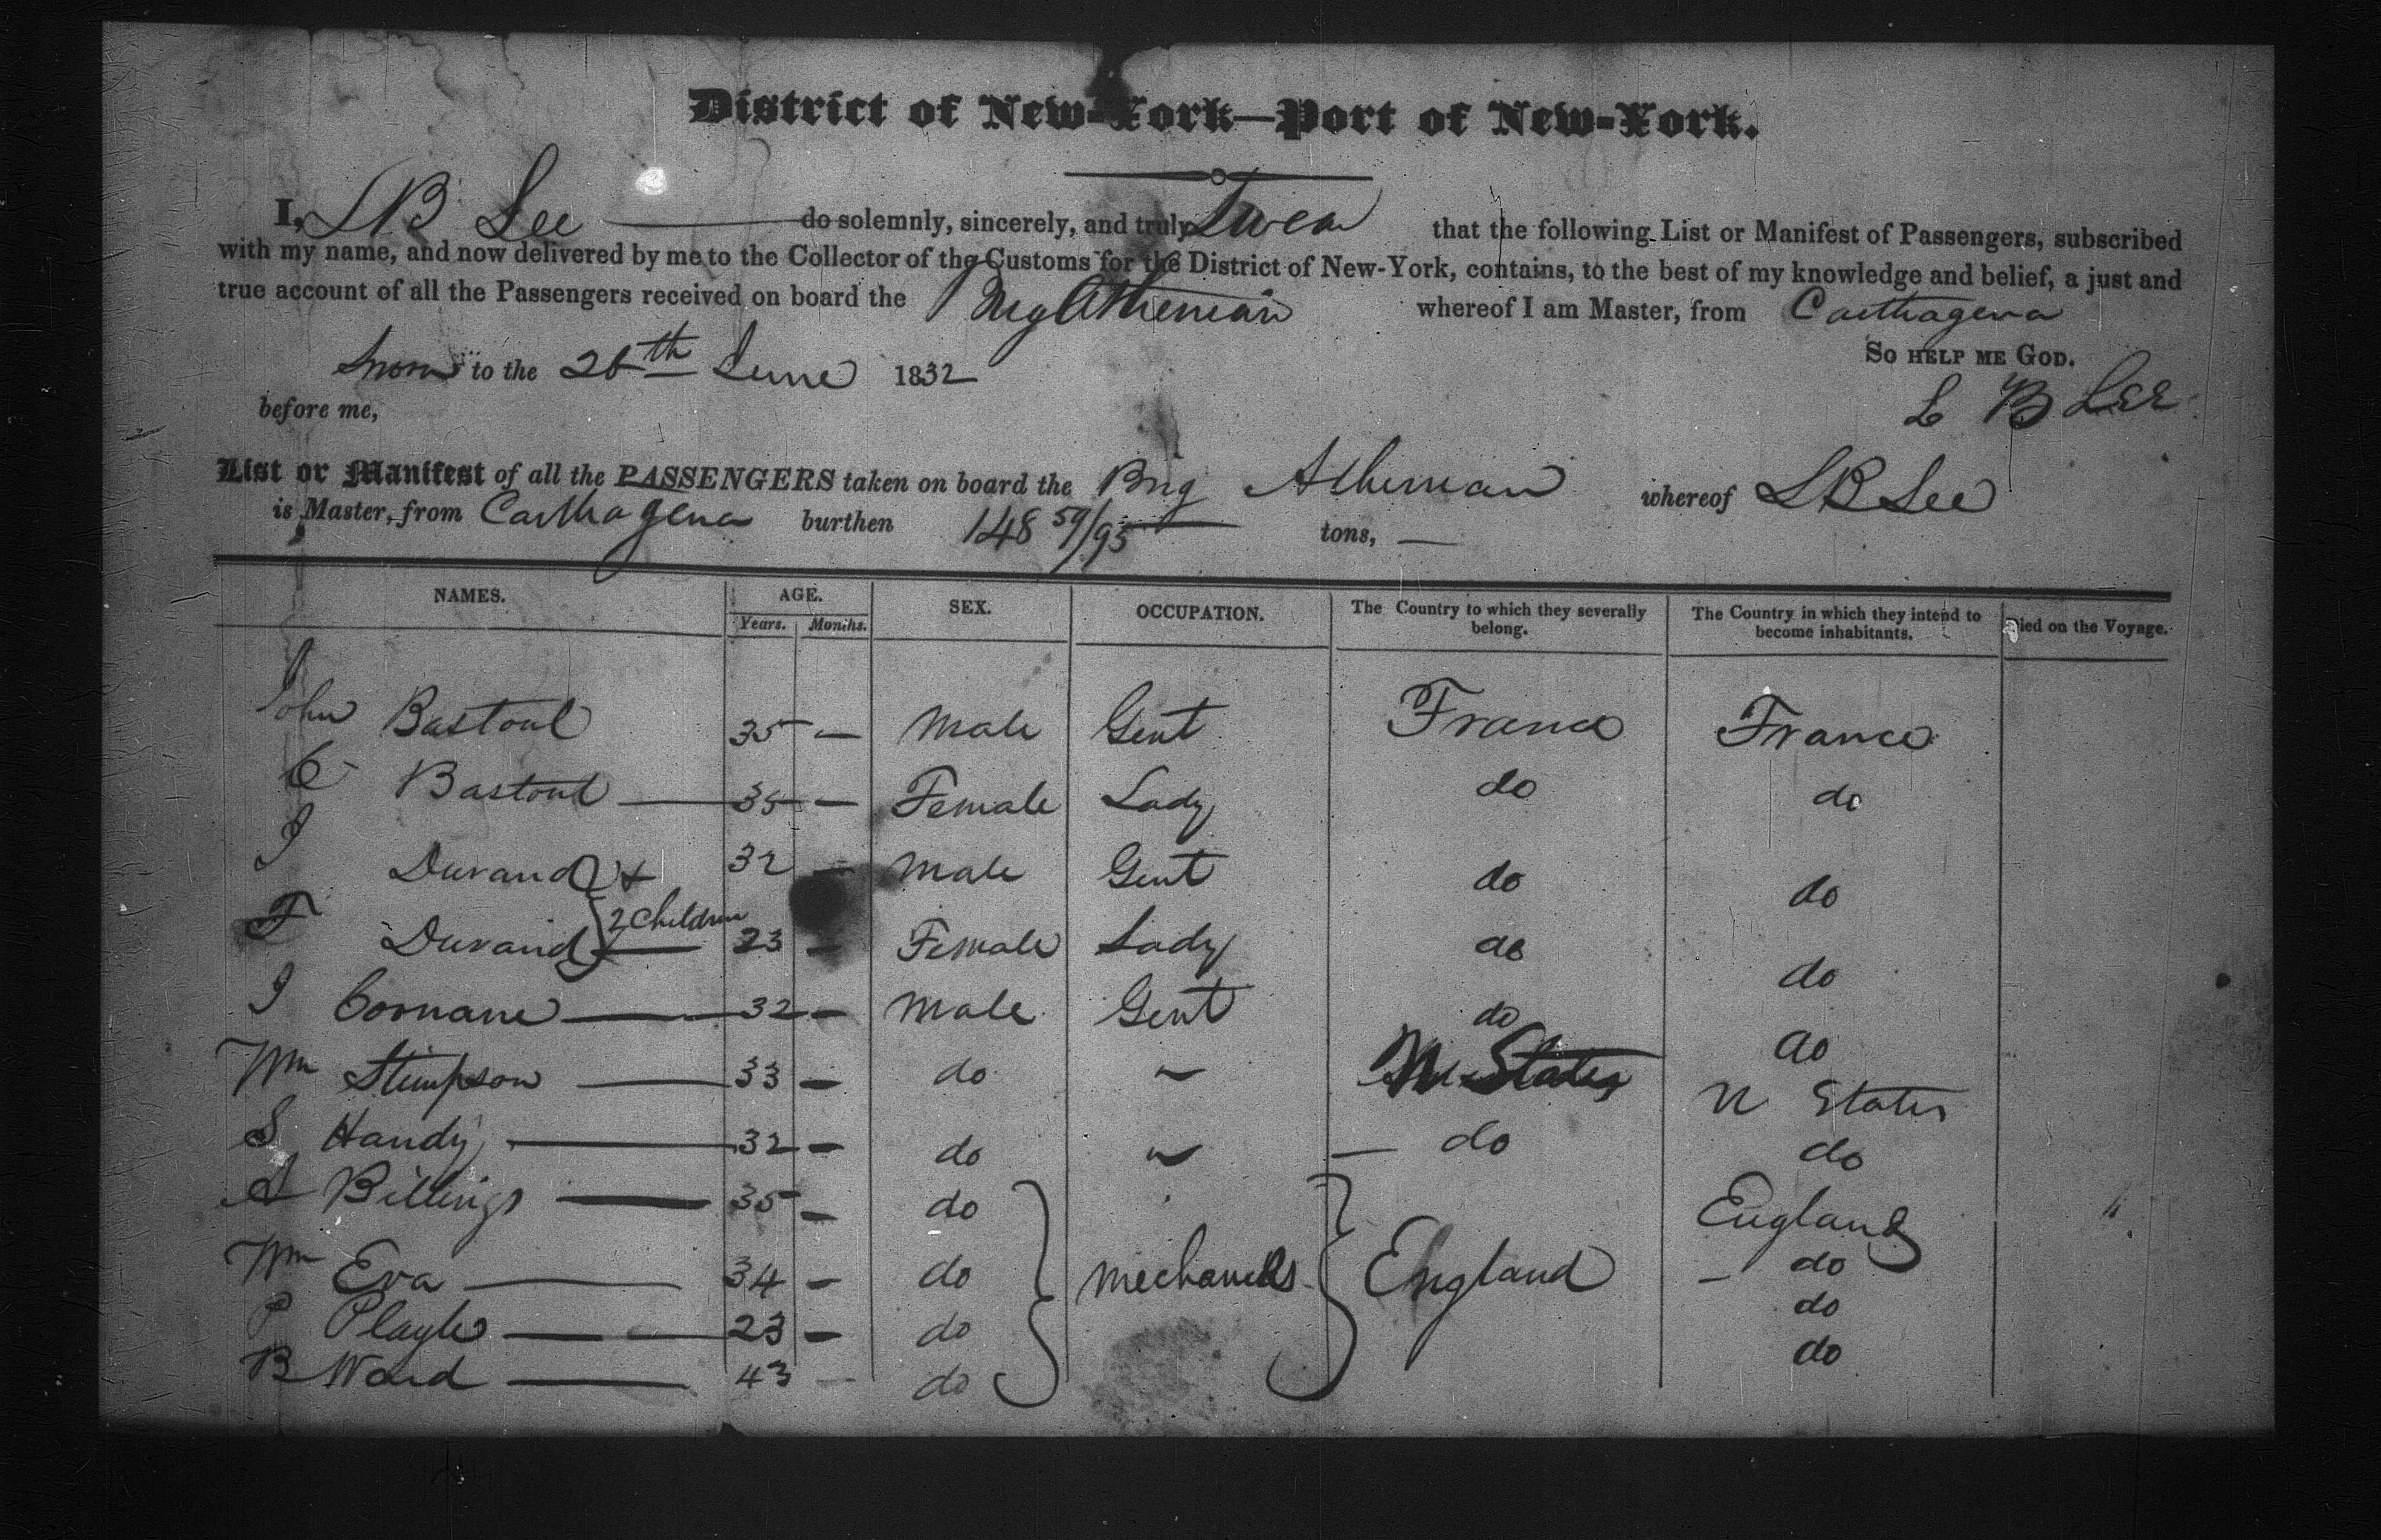 District of New-York—Port of New-York.
I, L B Lee do solemnly, sincerely, and truly Swear that the following List or Manifest of Passengers, subscribed
with my name, and now delivered by me to the Collector of the Customs for the District of New-York, contains, to the best of my knowledge and belief, a just and
true account of all the Passengers received on board the Brig Athenian whereof I am Master, from Carthagena
Sworn to the 26th June 1832 So help me God.
before me, L B Lee
List or Manifest of all the PASSENGERS taken on board the Brig Athenian whereof L B Lee
is Master, from Carthagena burthen 148 59/95 tons,
NAMES. AGE. SEX. OCCUPATION. The Country to which they severally belong. The Country in which they intend to become inhabitants. Died on the Voyage.
Years. Months.
John Bastoul 35 — Male Gent France France
C Bastoul 35 — Female Lady do do
J Durand & 32 — Male Gent do do
F Durand 2 Children 23 — Female Lady do do
J Cornane 32 — Male Gent do do
Wm Stimpson 33 — do " U States U States
S Handy 32 — do " do do
A Billings 35 — do England
Wm Eva 34 — do mechanics England do
P 23 — do do
B Ward 43 — do do